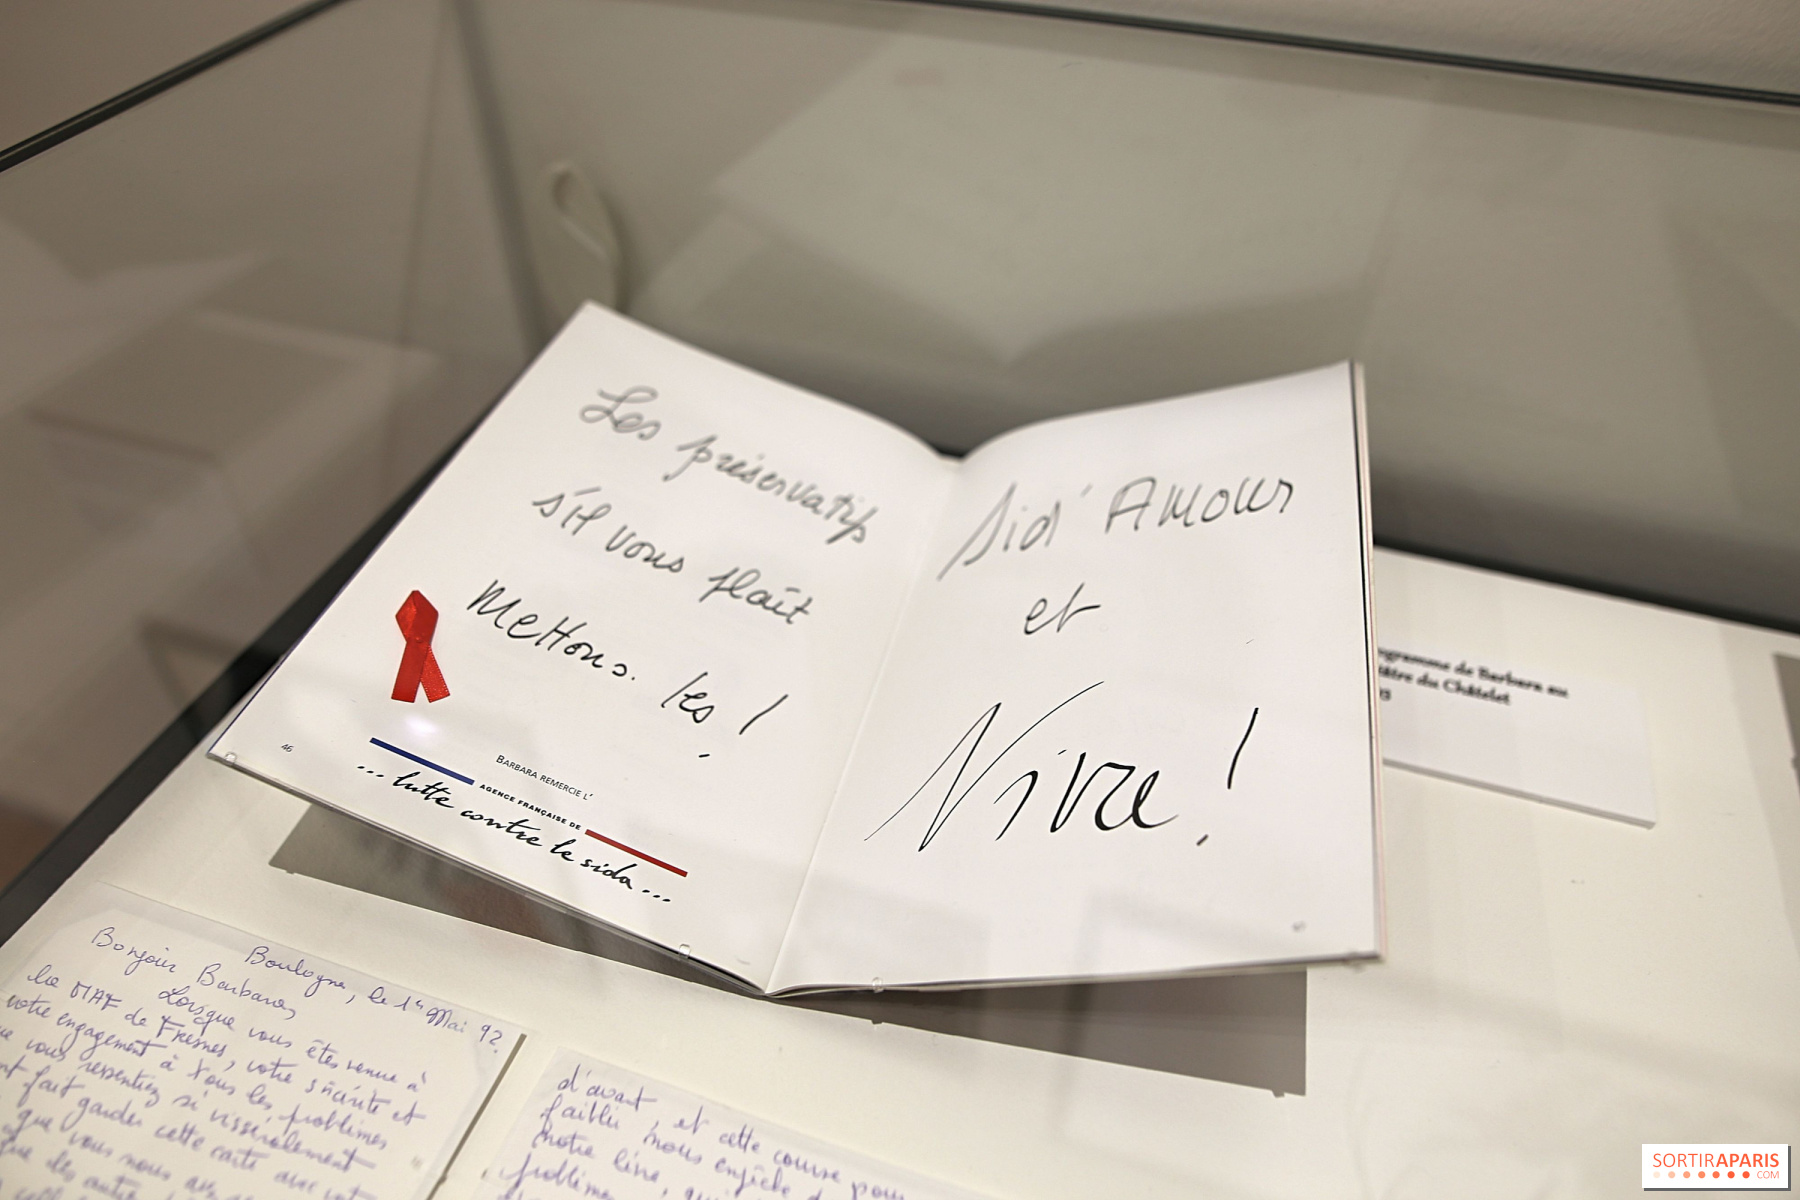 Les préservatifs
s'il vous plaît
Mettons-les !
46
BARBARA REMERCIE L'
AGENCE FRANÇAISE DE
... lutte contre le sida ...
Sid' Amour
et
Vivre !
ogramme de Barbara au
âtre du Châtelet
Boulogne, le 1er Mai 92.
Bonjour Barbara,
Lorsque vous êtes venue à
la MAF de Fresnes, votre sincérité et
votre engagement à tous les problèmes
vous ressentiez si viscéralement
fait garder cette carte avec
que vous nous
d'avant, et cette course pour
faibli nous empêche
notre livre,
problème
SORTIRAPARIS
.COM